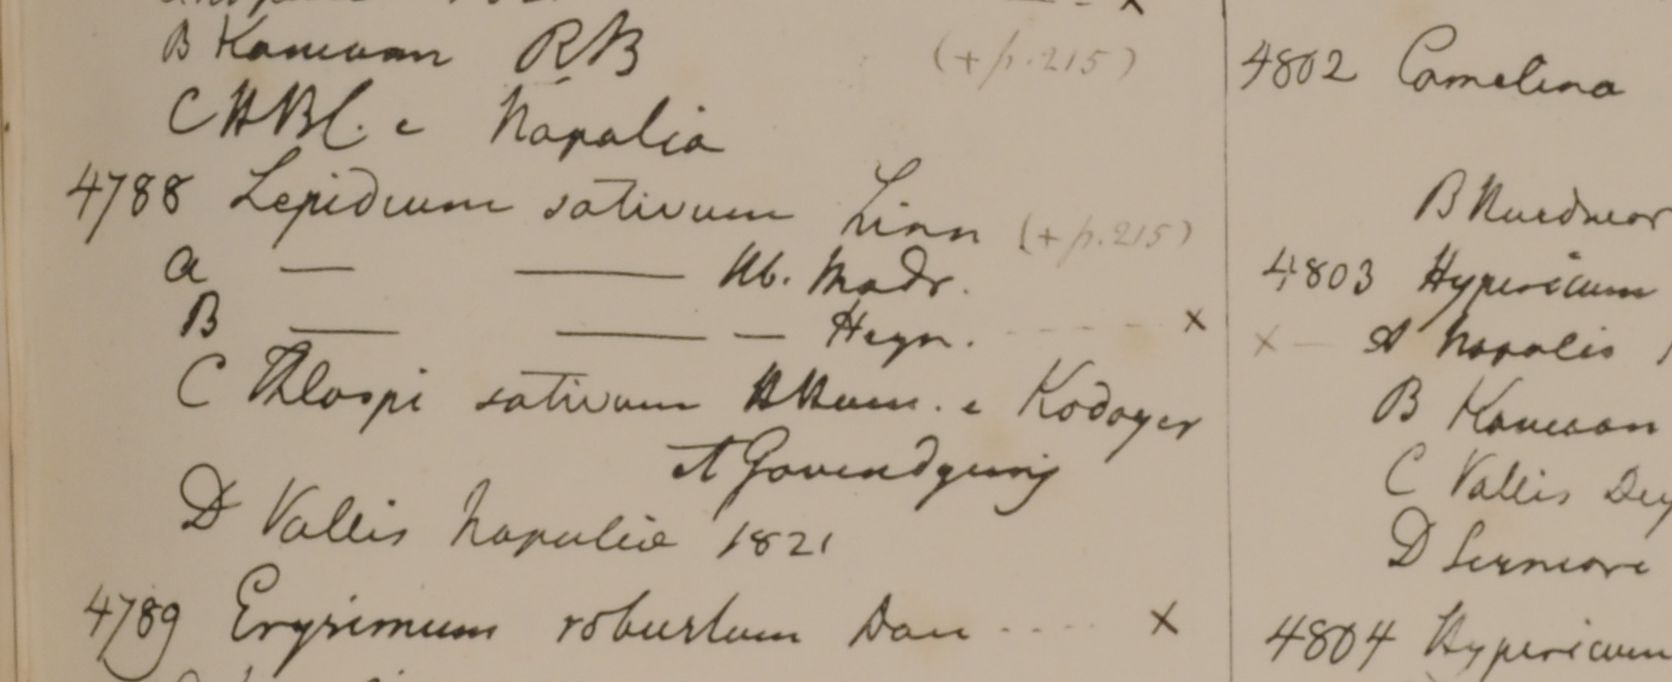 B Kamaon RB (+ p. 215)
C HBC. e Napalia
4788 Lepidium sativum Linn (+ p. 215)
a — —— Hb. Madr.
B —— —— — Heyn. - - - - x
C Thlaspi sativum HHam. e Kodoyer
A Govendgunj
D Vallis Napalia 1821
4789 Erysimum robustum Don .... x
4802 Camelina
B Hurdwar
4803 Hypericum
x — A Napalis
B Kamaon
C Vallis Dey
D Sirmore
4804 Hypericum